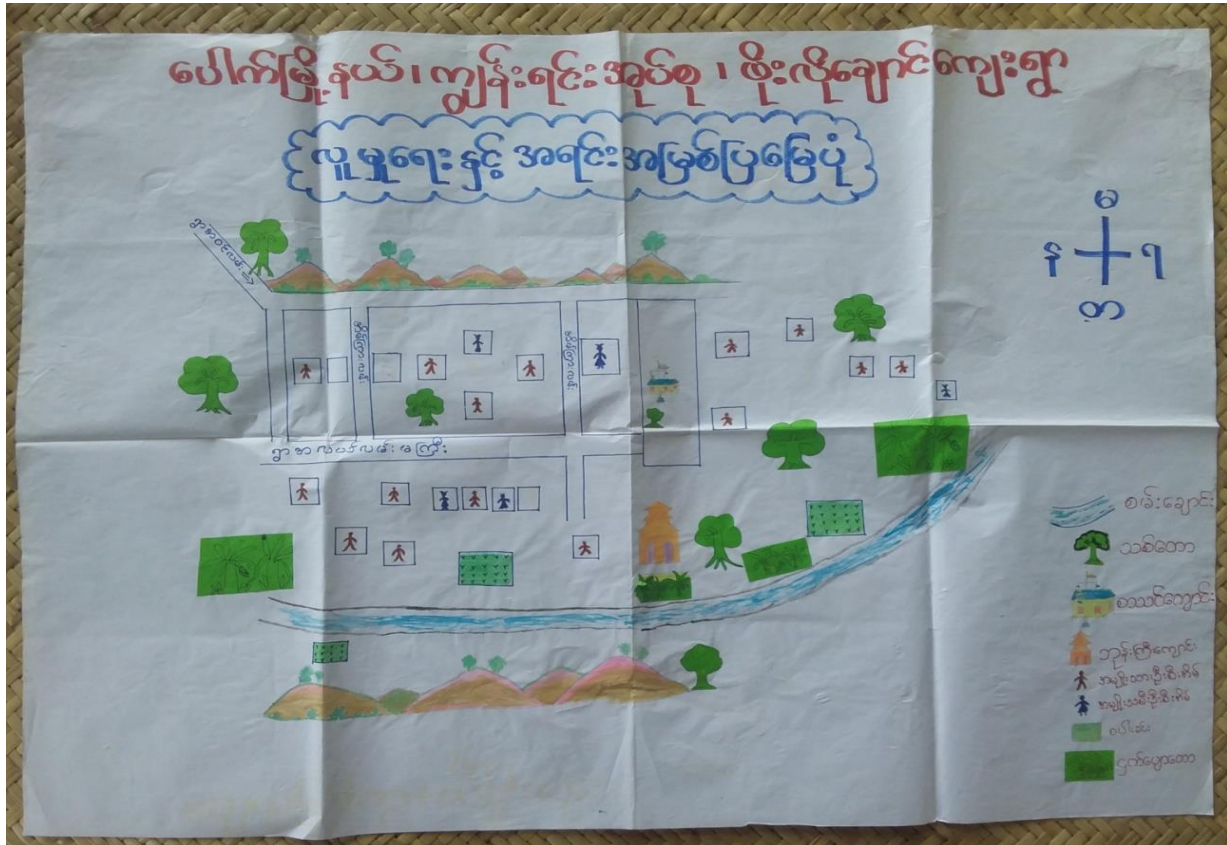 ပေါက်မြို့နယ်၊ ကျွန်းရင်းအုပ်စု၊ ဖိုးလိုချောင်ကျေးရွာ
လူမှုရေးနှင့် အရင်းအမြစ်ပြမြေပုံ
မ
န
ရ
တ
ရွာအဝင်လမ်း
ရွာအလယ်လမ်းမကြီး
စမ်းချောင်း
သစ်တော
စာသင်ကျောင်း
ဘုန်းကြီးကျောင်း
အမျိုးသားဦးစီးအိမ်
အမျိုးသမီးဦးစီးအိမ်
စပါးခင်း
ငှက်ပျောတော